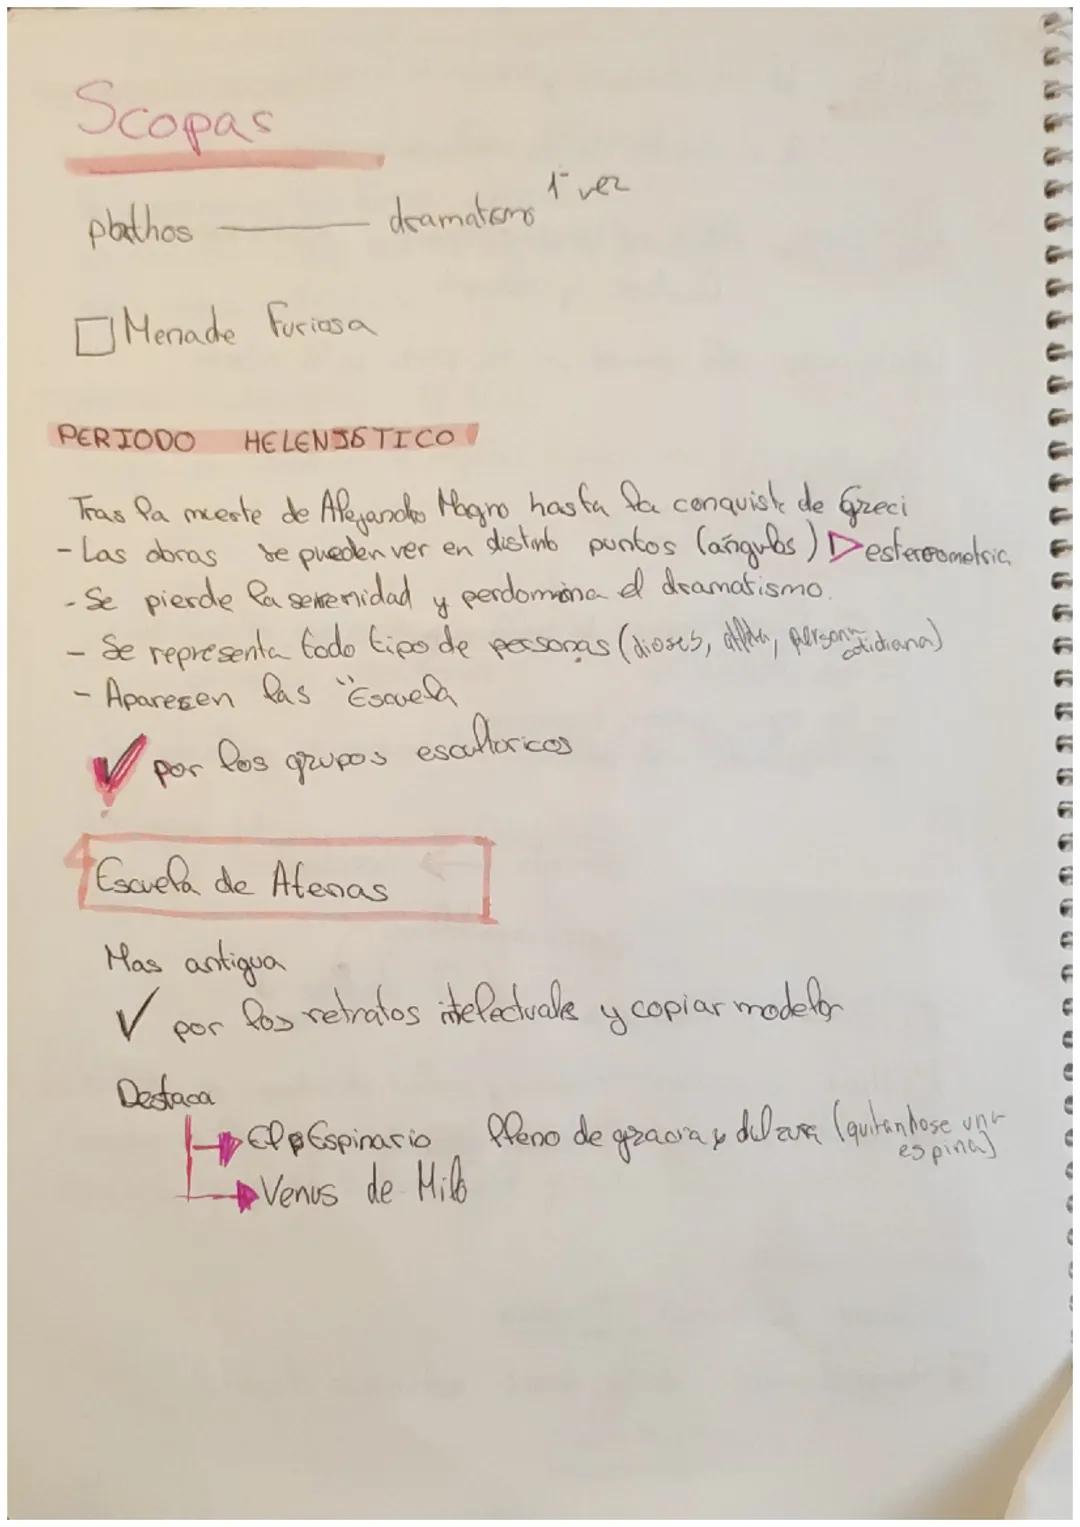 Scopas
pathos — dramatismo 1ª vez
□ Menade Furiosa
PERIODO HELENISTICO
Tras la muerte de Alejandro Magno hasta la conquist de Greci
- Las obras se pueden ver en distinto puntos (ángulos) ▷ estereometric
- Se pierde la serenidad y perdomina el dramatismo.
- Se representa todo tipo de personas (dioses, atleta, persona cotidiana)
- Aparecen las "Escuela
✓ por los grupos escultoricos
Escuela de Atenas
Mas antigua
✓ por los retratos intelectuales y copiar modelos
Destaca
El Espinario lleno de gracia y dulzura (quitandose una espina)
Venus de Milo